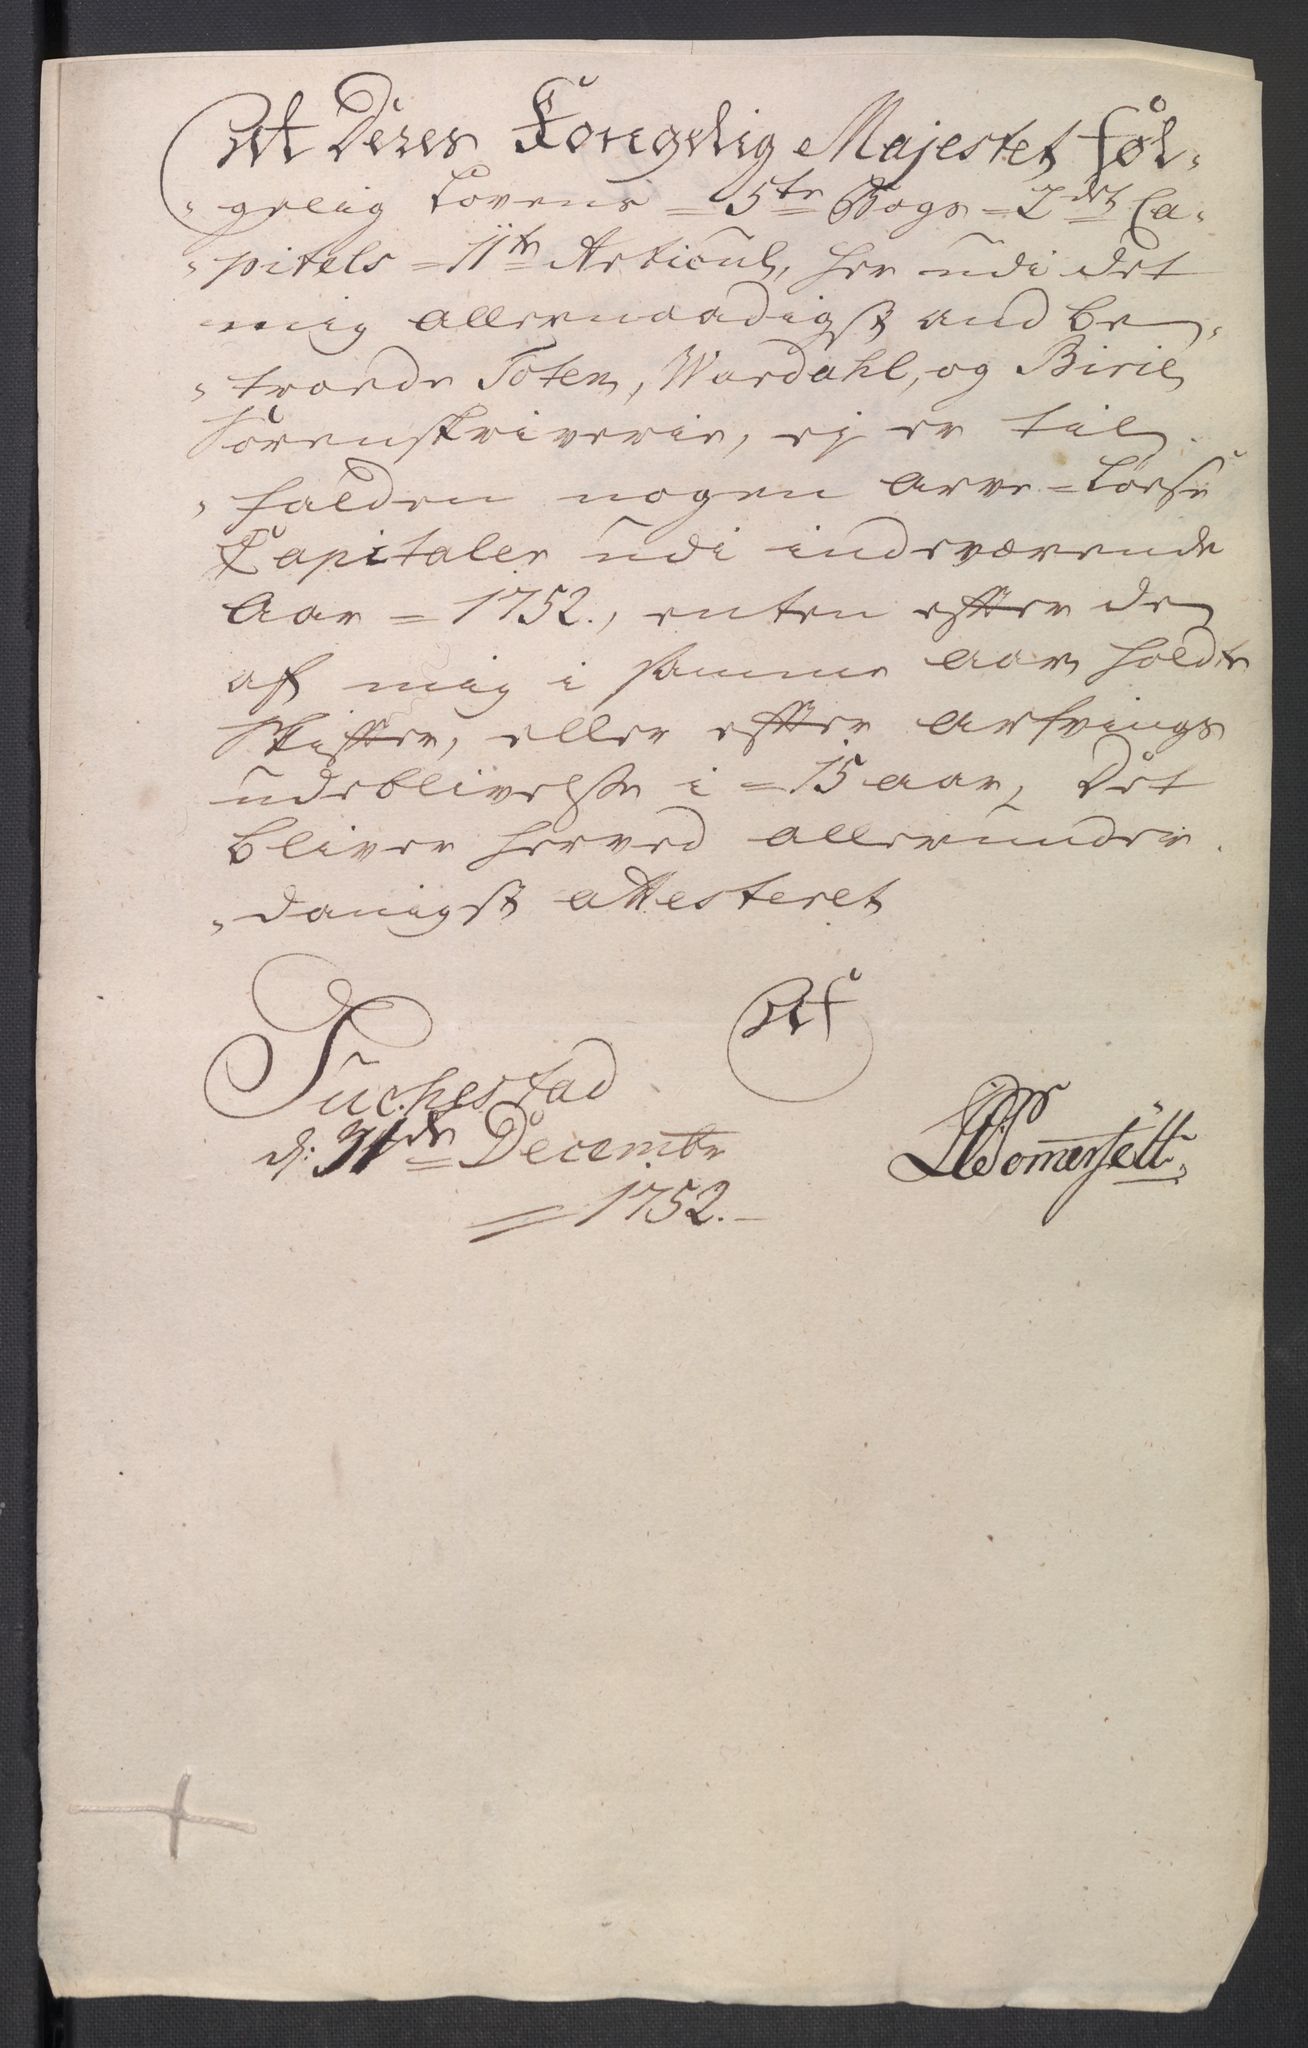 At Deres Kongelig Majestet føl-
-gelig Lovens = 5te Bogs = 2det Ca-
-pitels = 11te Articul, her udi det
mig allernaadigst anbe-
-troede Toten, Wardahl, og Birie
Sorenskriverie, ej er til
-falden nogen arve=Løese
Capitaler udi indeværende
Aar = 1752., enten efter de
af mig i samme Aar holdte
Skifter, eller efter arfvings
udeblivelse i = 15 aar, Det
bliver herved allerunder-
-danigst attesteret
Af
Tuchestad
d: 31de Decembr
= 1752.-
Somersëtt.